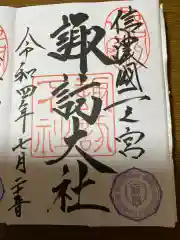 信濃國一之宮
諏訪大社
令和四年七月